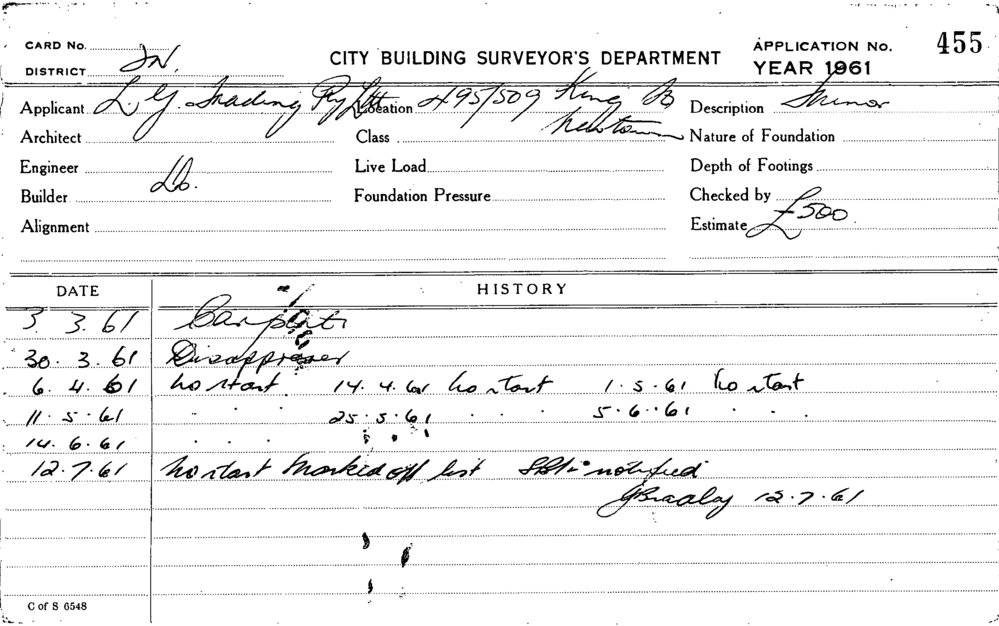 CARD No.
DISTRICT
CITY BUILDING SURVEYOR'S DEPARTMENT
APPLICATION No. 455
YEAR 1961
Applicant L. G. Trading Pty Ltd Location 495/509 King St Description Minor
Architect Class Newtown Nature of Foundation
Engineer Live Load Depth of Footings
Builder Do. Foundation Pressure Checked by
Alignment Estimate £500
DATE HISTORY
3. 3. 61 Carport
30. 3. 61 Disapprover
6. 4. 61 No start 14. 4. 61 No start 1. 5. 61 No start
11. 5. 61 . . . 25. 5. 61 . . . 5. 6. 61 . . .
14. 6. 61 . . .
12. 7. 61 No start Marked off list notified
JBradley 12. 7. 61
C of S 6548